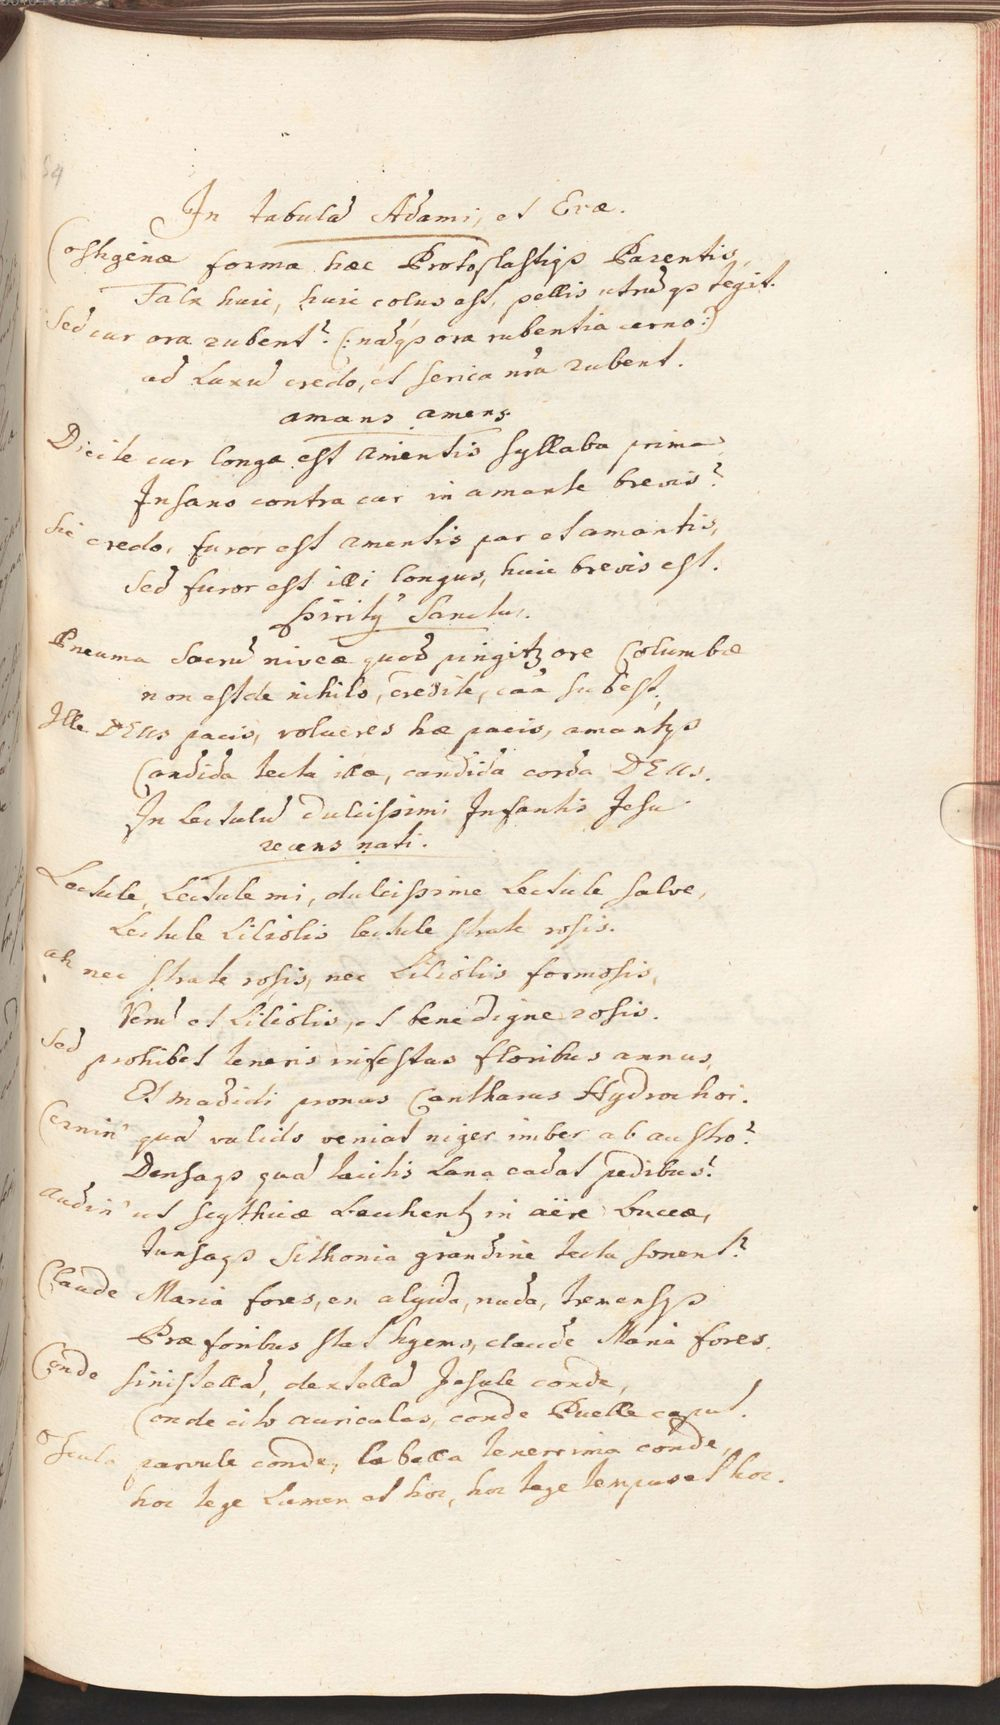 54
In tabulā Adami, et Evæ.
Costigenæ forma hæc Protoplastiqȝ Parentis,
Falx huic, huic colus est, pellis utrūqȝ tegit.
Sed cur ora rubent? (: nāqȝ ora rubentia cerno:)
ad Luxū credo, et serica nr̄a rubent.
amans amens.
Dicite cur longa est amentis syllaba prima,
Insano contra cur in amante brevis?
Sic credo, furor est amentis par et amantis,
Sed furor est illi longus, huic brevis est.
Spiritꝰ Sanctus.
Pneuma Sacrū niveæ quod pingitꝛ ore Columbæ
non est de nihilo, credite, caā subest,
Ille DEUs pacis, volucres hæ pacis, amantqȝ
Candida tecta illæ, candida corda DEUs.
In Lectulū dulcissimi Infantis Jesu
recens nati.
Lectule, Lectule mi, dulcissime Lectule salve,
Lectule Liliolis lectule strate rosis.
ah nec strate rosis, nec Liliolis formosis,
Verū et Liliolis, et bene digne rosis.
Sed prohibet teneris infestus floribus annus,
Et madidi pronus Cantharus Hydrochoi.
Cernin' quā valido veniat niger imber ab austro?
Densaqȝ quā tacitis Lana cadat pedibus?
audin' ut scythicæ Bacchentꝛ in aëre Buccæ,
tunsaqȝ Sithonia grandine tecta sonent?
Claude Maria fores, en algida, nuda, tremensqȝ
Præ foribus stat hyems, claude Maria fores.
Conde sinistellā, dextellā Jesule conde,
Conde cito auriculas, conde Puelle caput.
Oscula parvule conde, labella tenerrima conde,
hoc tege Lumen et hoc, hoc tege tempus et hoc.